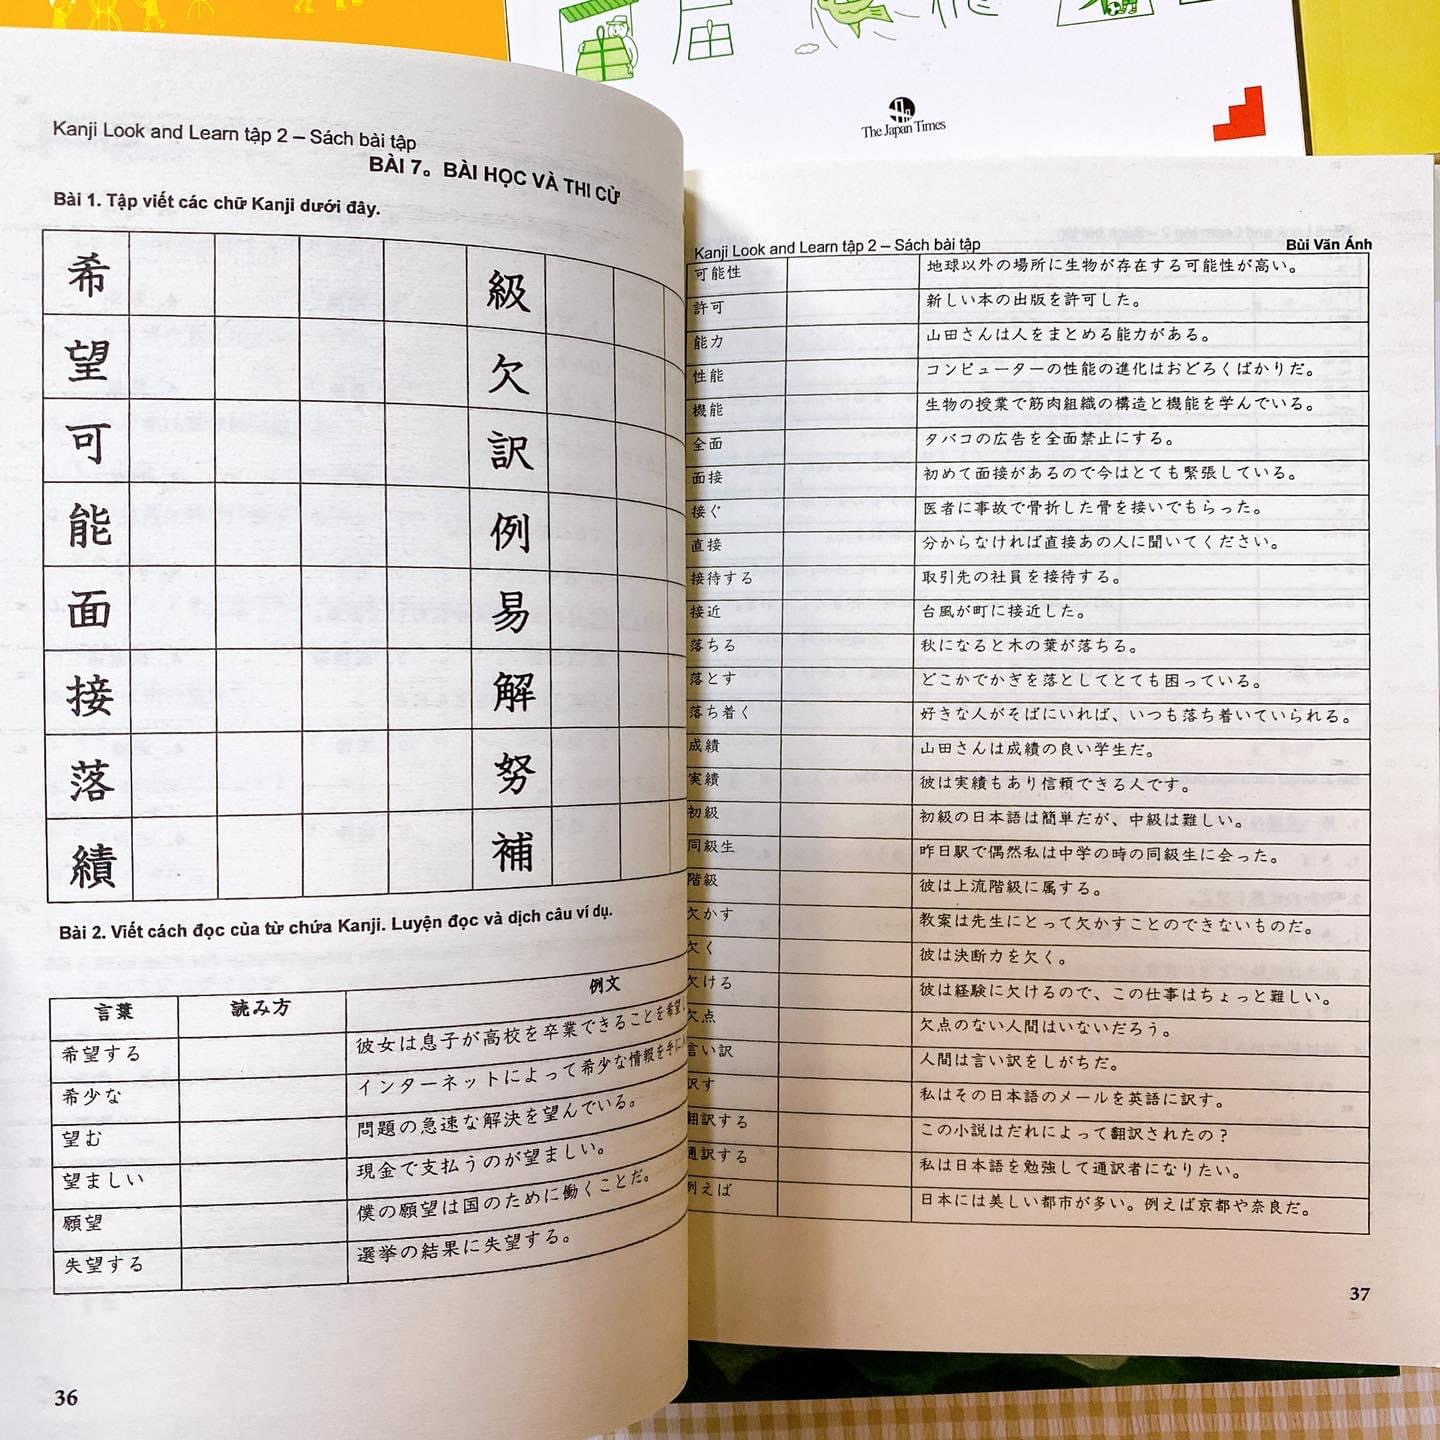 The Japan Times
Kanji Look and Learn tập 2 – Sách bài tập
BÀI 7。BÀI HỌC VÀ THI CỬ
Bài 1. Tập viết các chữ Kanji dưới đây.
希 級
望 欠
可 訳
能 例
面 易
接 解
落 努
績 補
Bài 2. Viết cách đọc của từ chứa Kanji. Luyện đọc và dịch câu ví dụ.
言葉 読み方 例文
希望する 彼女は息子が高校を卒業できることを希望し
希少な インターネットによって希少な情報を手に
望む 問題の急速な解決を望んでいる。
望ましい 現金で支払うのが望ましい。
願望 僕の願望は国のために働くことだ。
失望する 選挙の結果に失望する。
36
Kanji Look and Learn tập 2 – Sách bài tập Bùi Văn Ánh
可能性 地球以外の場所に生物が存在する可能性が高い。
許可 新しい本の出版を許可した。
能力 山田さんは人をまとめる能力がある。
性能 コンピューターの性能の進化はおどろくばかりだ。
機能 生物の授業で筋肉組織の構造と機能を学んでいる。
全面 タバコの広告を全面禁止にする。
面接 初めて面接があるので今はとても緊張している。
接ぐ 医者に事故で骨折した骨を接いでもらった。
直接 分からなければ直接あの人に聞いてください。
接待する 取引先の社員を接待する。
接近 台風が町に接近した。
落ちる 秋になると木の葉が落ちる。
落とす どこかでかぎを落としてとても困っている。
落ち着く 好きな人がそばにいれば、いつも落ち着いていられる。
成績 山田さんは成績の良い学生だ。
実績 彼は実績もあり信頼できる人です。
初級 初級の日本語は簡単だが、中級は難しい。
同級生 昨日駅で偶然私は中学の時の同級生に会った。
階級 彼は上流階級に属する。
欠かす 教案は先生にとって欠かすことのできないものだ。
欠く 彼は決断力を欠く。
欠ける 彼は経験に欠けるので、この仕事はちょっと難しい。
欠点 欠点のない人間はいないだろう。
言い訳 人間は言い訳をしがちだ。
訳す 私はその日本語のメールを英語に訳す。
翻訳する この小説はだれによって翻訳されたの？
通訳する 私は日本語を勉強して通訳者になりたい。
例えば 日本には美しい都市が多い。例えば京都や奈良だ。
37